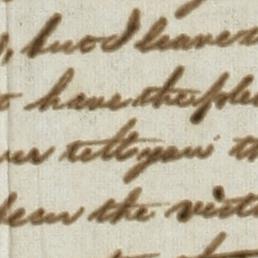 , but I leave
have the ple
tell you th
the vict